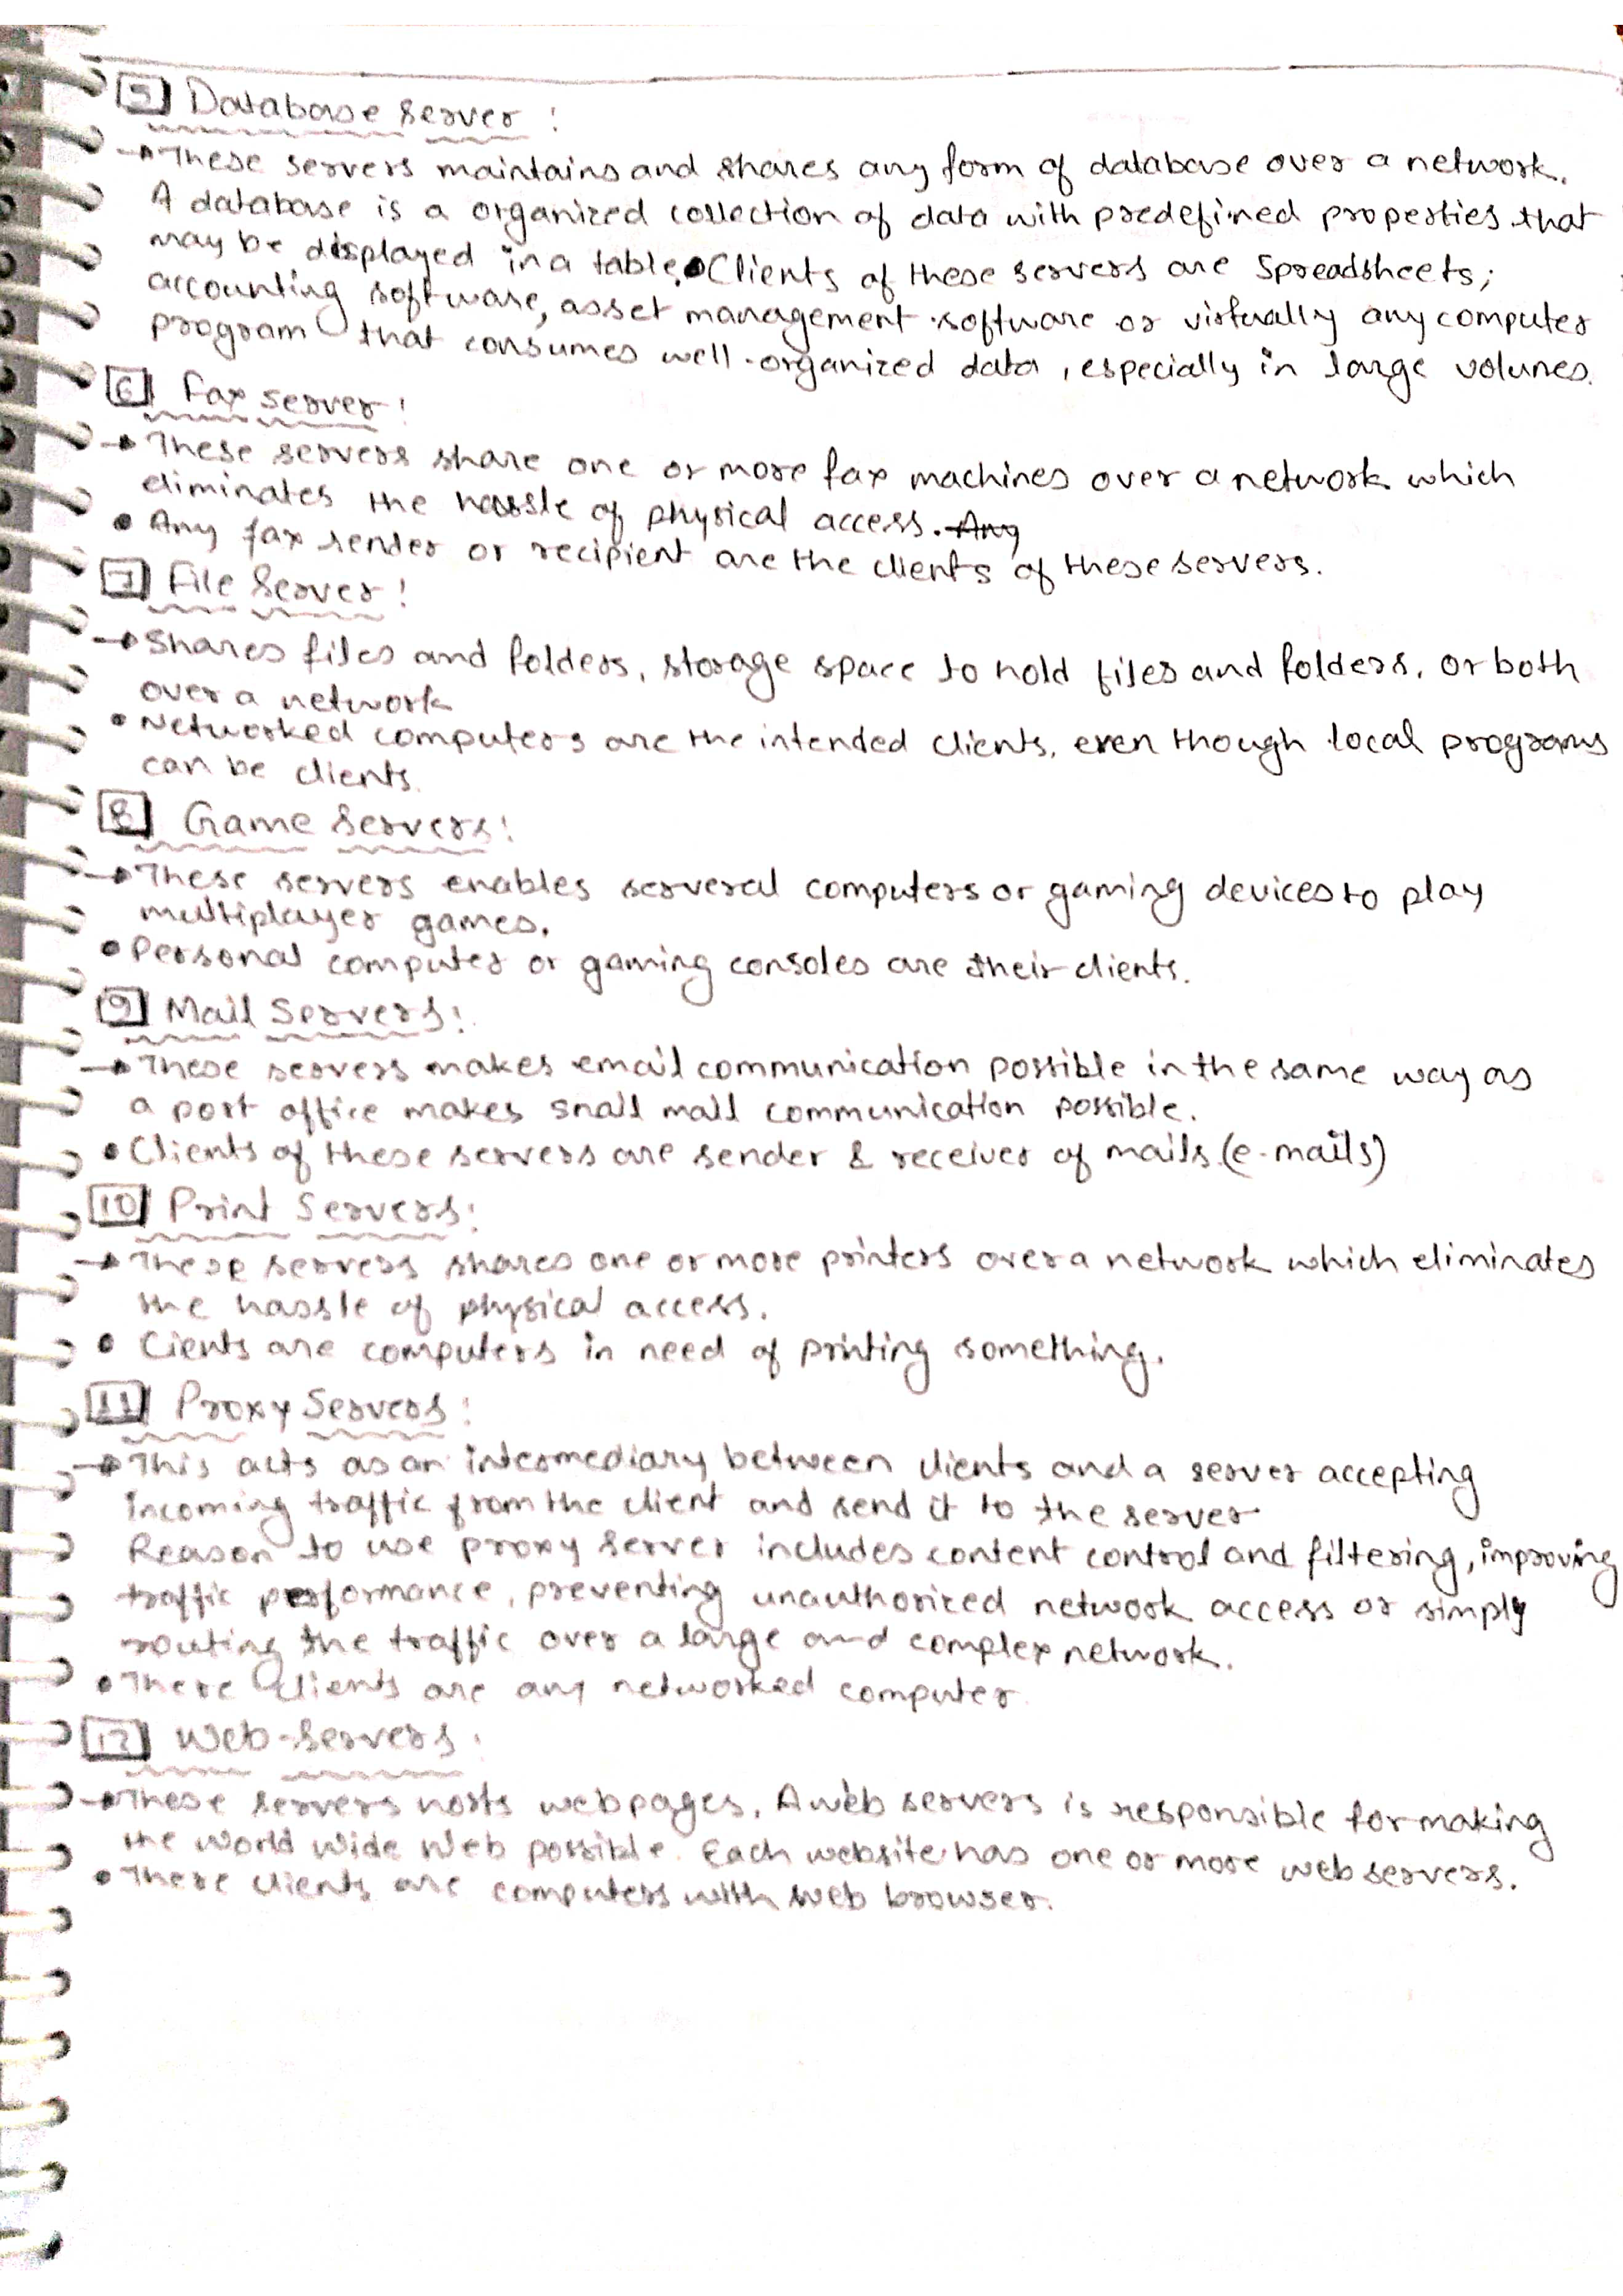 5 Database Server :
→ These servers maintains and shares any form of database over a network.
A database is a organized collection of data with predefined properties that
may be displayed in a table. • Clients of these servers are Spreadsheets;
accounting software, asset management software or virtually any computer
program that consumes well-organized data, especially in large volumes.
6 Fax server :
→ These servers share one or more fax machines over a network which
eliminates the hassle of physical access. Any
• Any fax sender or recipient are the clients of these servers.
7 File Server :
→ Shares files and folders, storage space to hold files and folders, or both
over a network
• Networked computers are the intended clients, even though local programs
can be clients.
8 Game Servers :
→ These servers enables serveral computers or gaming devices to play
multiplayer games.
• Personal computer or gaming consoles are their clients.
9 Mail Servers :
→ These servers makes email communication possible in the same way as
a post office makes snail mail communication possible.
• Clients of these servers are sender & receiver of mails (e-mails)
10 Print Servers :
→ These servers shares one or more printers over a network which eliminates
the hassle of physical access.
• Cients are computers in need of printing something.
11 Proxy Servers :
→ This acts as an intermediary between clients and a server accepting
incoming traffic from the client and send it to the server
Reason to use proxy server includes content control and filtering, improving
traffic performance, preventing unauthorized network access or simply
routing the traffic over a large and complex network.
• There clients are any networked computer
12 Web-Servers :
→ These servers hosts webpages. A web servers is responsible for making
the World Wide Web possible. Each website has one or more web servers.
• There clients are computers with web browser.